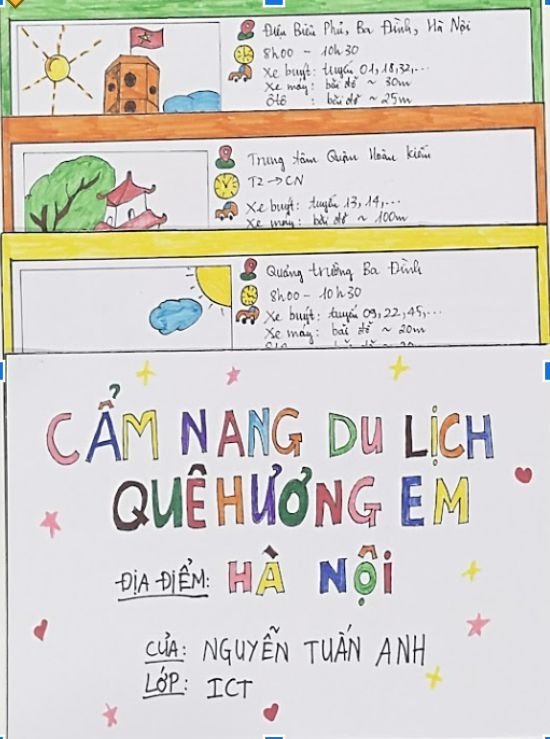 Điện Biên Phủ, Ba Đình, Hà Nội
8h00 - 10h30
Xe buýt: tuyến 01, 18, 32,...
Xe máy: bãi đỗ ~ 30m
Ôtô : bãi đỗ ~ 25m
Trung tâm Quận Hoàn Kiếm
T2 → CN
Xe buýt: tuyến 13, 14,...
Xe máy: bãi đỗ ~ 100m
Quảng trường Ba Đình
8h00 - 10h30
Xe buýt: tuyến 09, 22, 45,...
Xe máy: bãi đỗ ~ 20m
CẨM NANG DU LỊCH
QUÊ HƯƠNG EM
ĐỊA ĐIỂM: HÀ NỘI
CỦA: NGUYỄN TUẤN ANH
LỚP: ICT